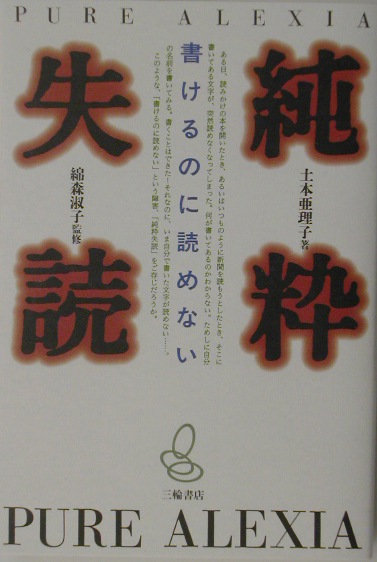 PURE ALEXIA
純粋
失読
土本亜理子 著
綿森淑子 監修
書けるのに読めない
ある日、読みかけの本を開いたとき、あるいはいつものように新聞を読もうとしたとき、そこに
書いてある文字が、突然読めなくなってしまった。何が書いてあるのかわからない。ためしに自分
の名前を書いてみる。書くことはできた。それなのに、いま自分で書いた文字が読めない……。
このような、「書けるのに読めない」という障害、「純粋失読」をご存じだろうか。
三輪書店
PURE ALEXIA